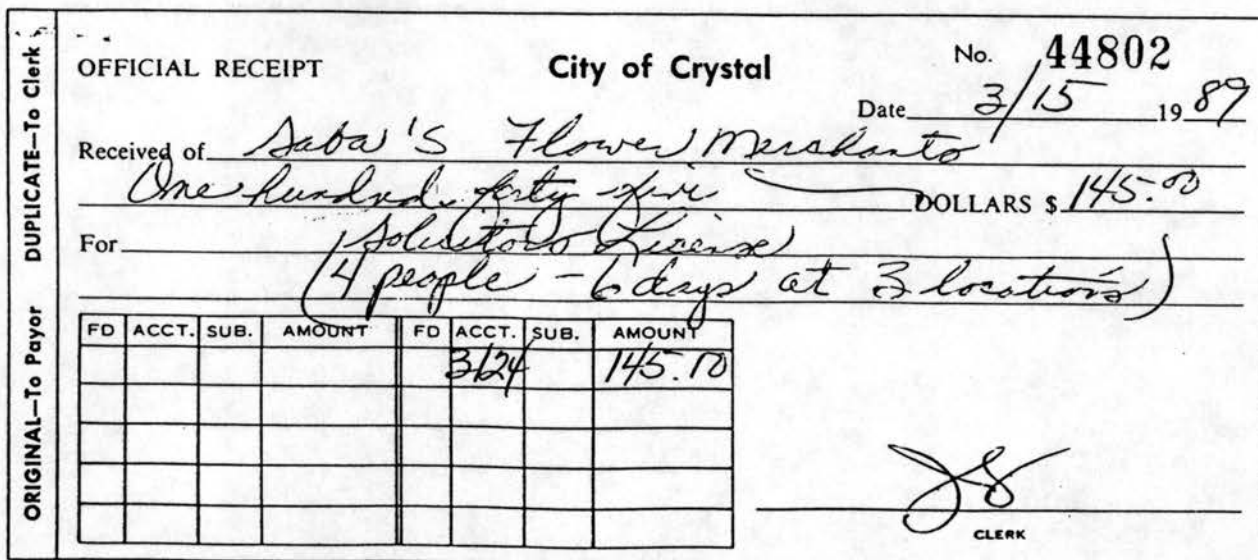 DUPLICATE—To Clerk
ORIGINAL—To Payor
OFFICIAL RECEIPT
City of Crystal
No. 44802
Date 3/15 19 89
Received of Saba's Flower Merchants
One hundred forty five DOLLARS $ 145.00
For Solicitors License
(4 people - 6 days at 3 locations)
FD ACCT. SUB. AMOUNT FD ACCT. SUB. AMOUNT
3124 145.00
CLERK